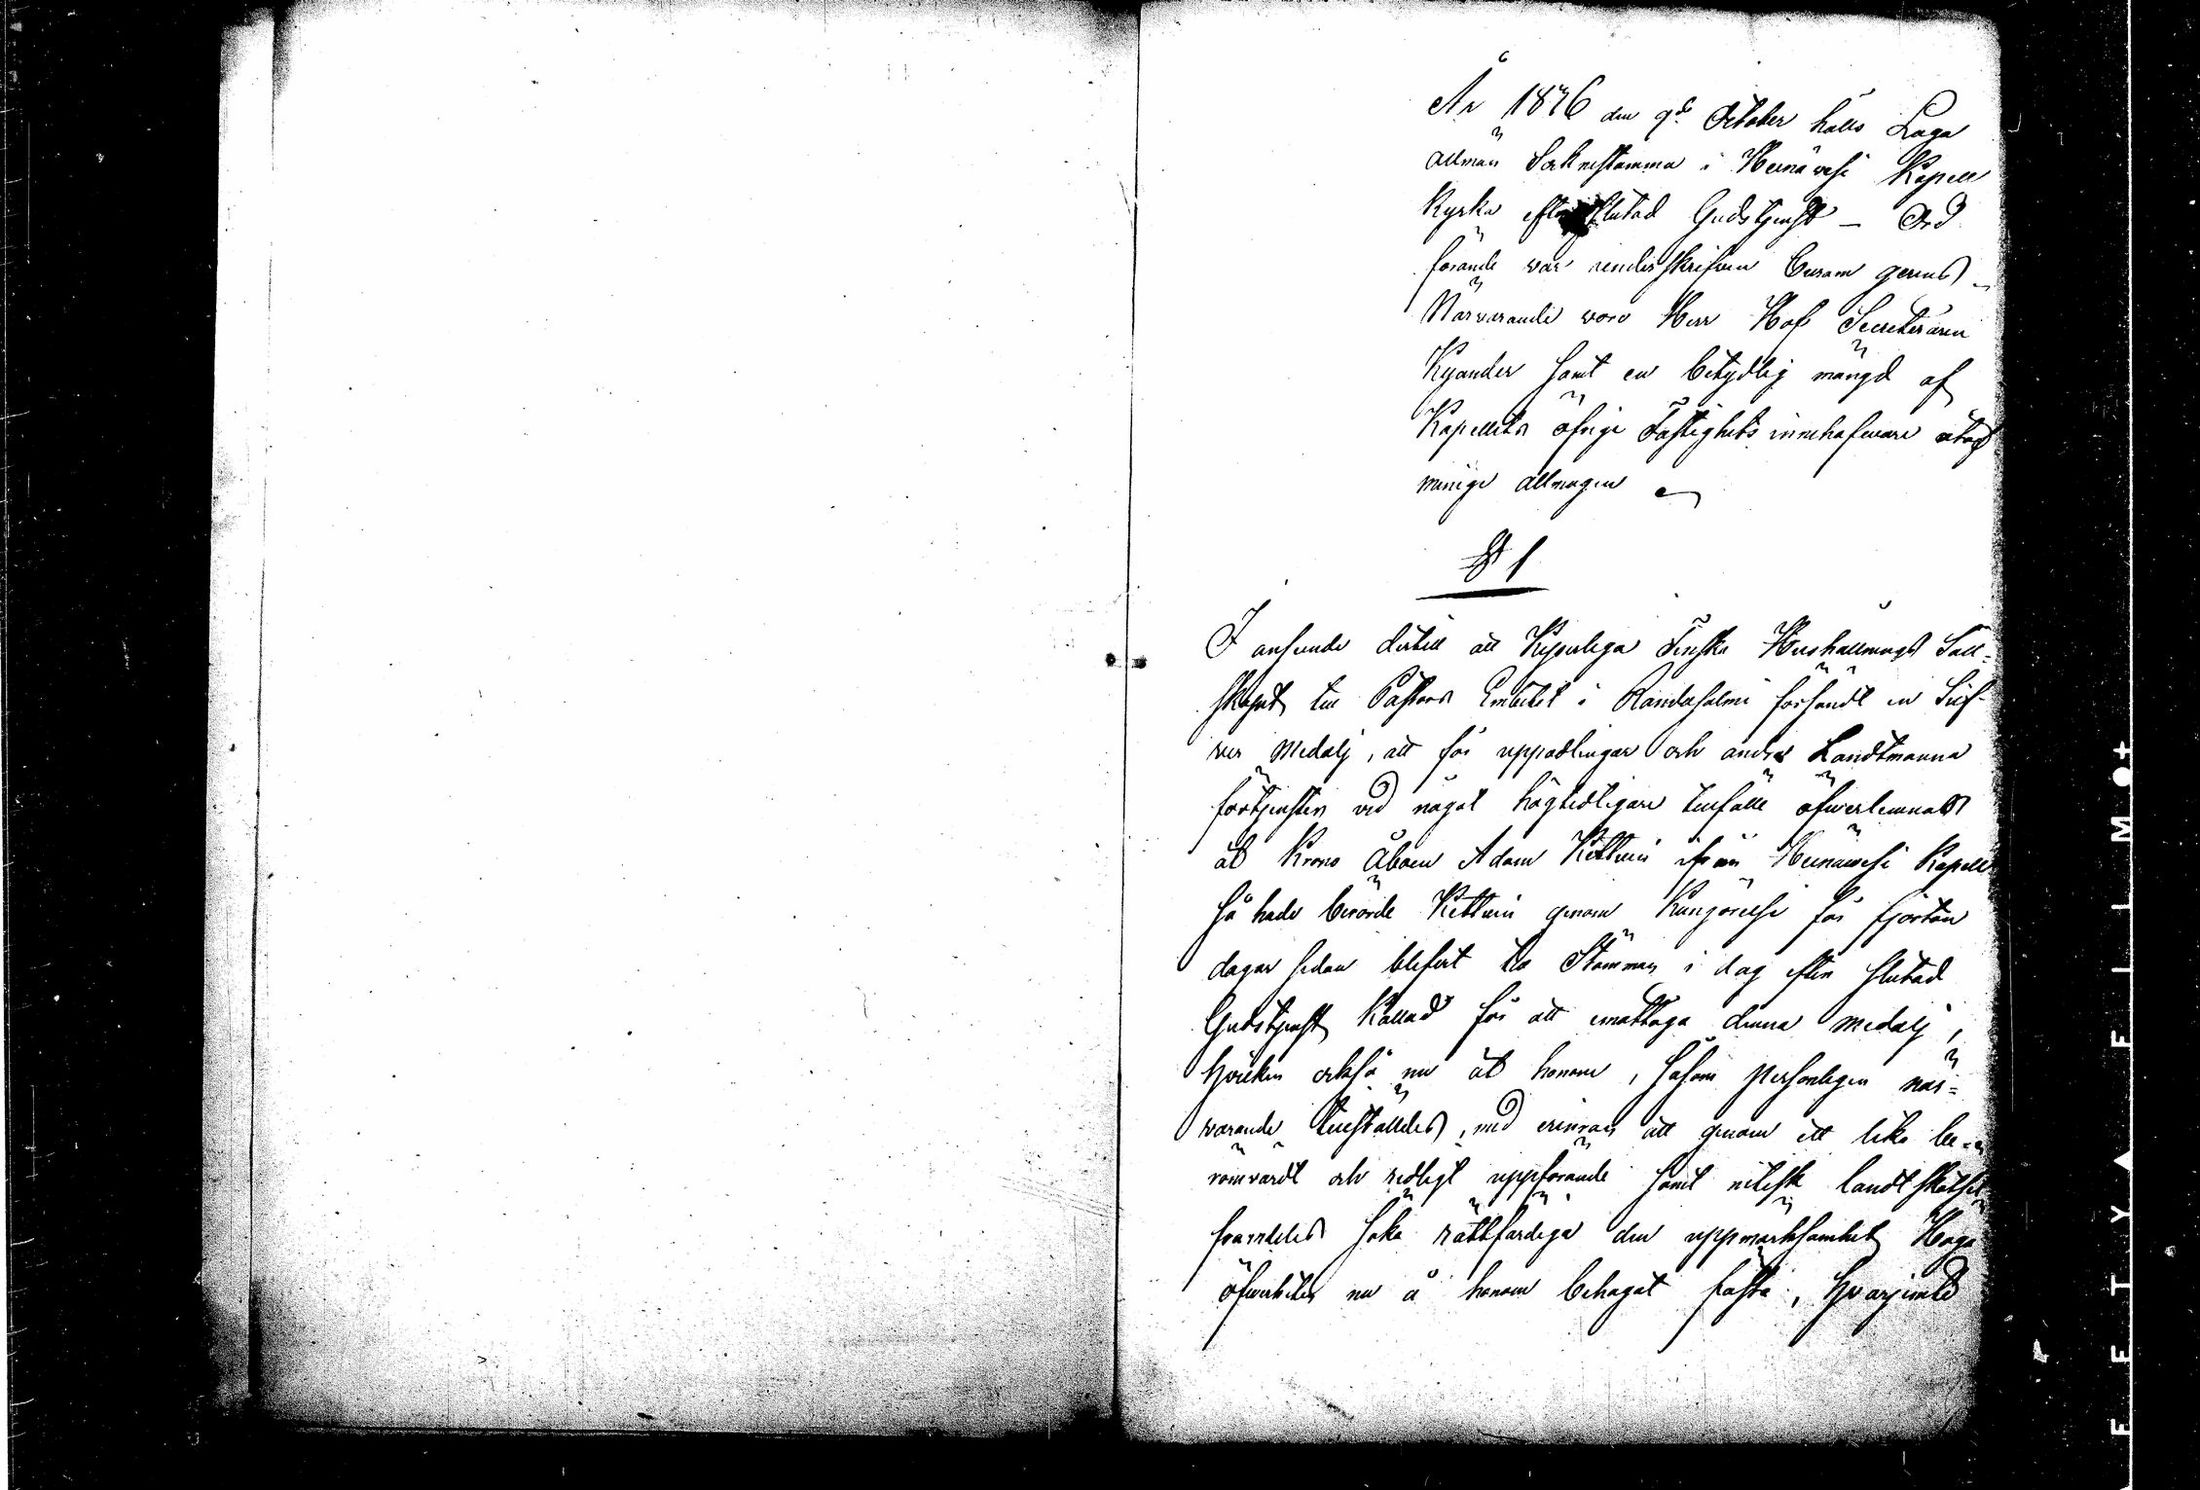 År 1836 den 9de October hölls Laga
allmän Sockenstämma i Heinävesi Kapell
Kyrka efter slutad Gudstjenst — Ord
förande var underskrifven Curam gerens.
Närvarande voro Herr Hof Secreteraren
Kyander samt en betydlig mängd af
Kapellets öfrige Fastighets innehafvare utaf
menige allmogen
§ 1
I anseende dertill att Kejserliga Finska Hushållnings Säll=
skapet till Pastors Embetet i Randasalmi försändt en Silf-
ver Medalj, att för uppodlingar och andra Landtmanna
förtjenster vid något högtidligare tillfälle öfverlemnas
åt Krono Åboen Adam Kettuin ifrån Heinävesi Kapell
så hade berörde Kettuin genom Kungörelse för fjorton
dagar sedan blifvit till Stämman i dag efter slutad
Gudstjenst kallad för att emottaga denna medalj,
hvilken också nu åt honom, såsom personligen när=
varande tillställdes, med erinran att genom ett lika be=
römvärdt och redligt uppförande samt nitisk landtskötsel
framdeles söka rättfärdiga den uppmärksamhet Höga
öfverheten nu å honom behagat fästa, hvarjemte